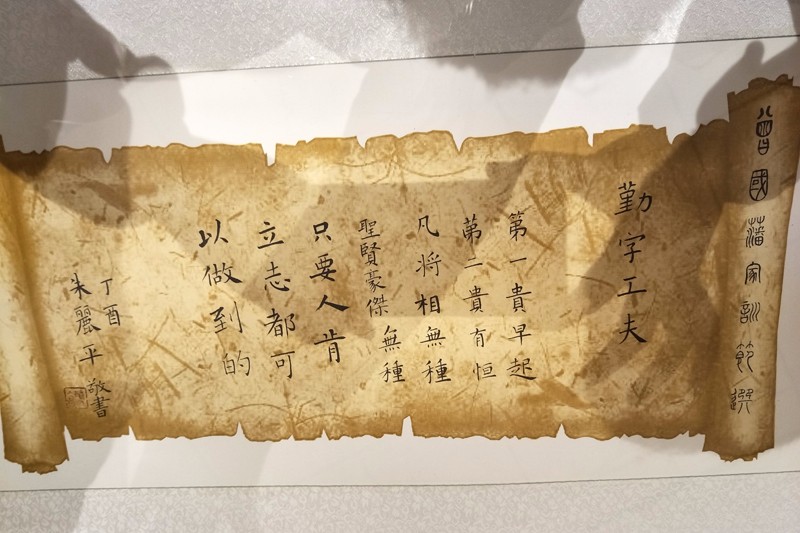 曾國藩家訓節選
勤字工夫
第一貴早起
第二貴有恒
凡將相無種
聖賢豪傑無種
只要人肯
立志都可
以做到的
丁酉
朱麗平敬書